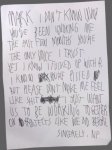 MARK I DON'T KNOW WHY
YOU'VE BEEN IGNORING ME
THE PAST FEW MONTHS YOU'RE
THE ONLY ONE I TRUST
YES I KNOW I FUCKED UP WITH R
I KNOW YOU'RE
BUT PLEASE DON'T MAKE ME FEEL
LIKE SHIT I JUST WANT
US TO BE WORKING TOGETHER
ON PROJECTS LIKE WE DID BEFORE
SINCERELY,